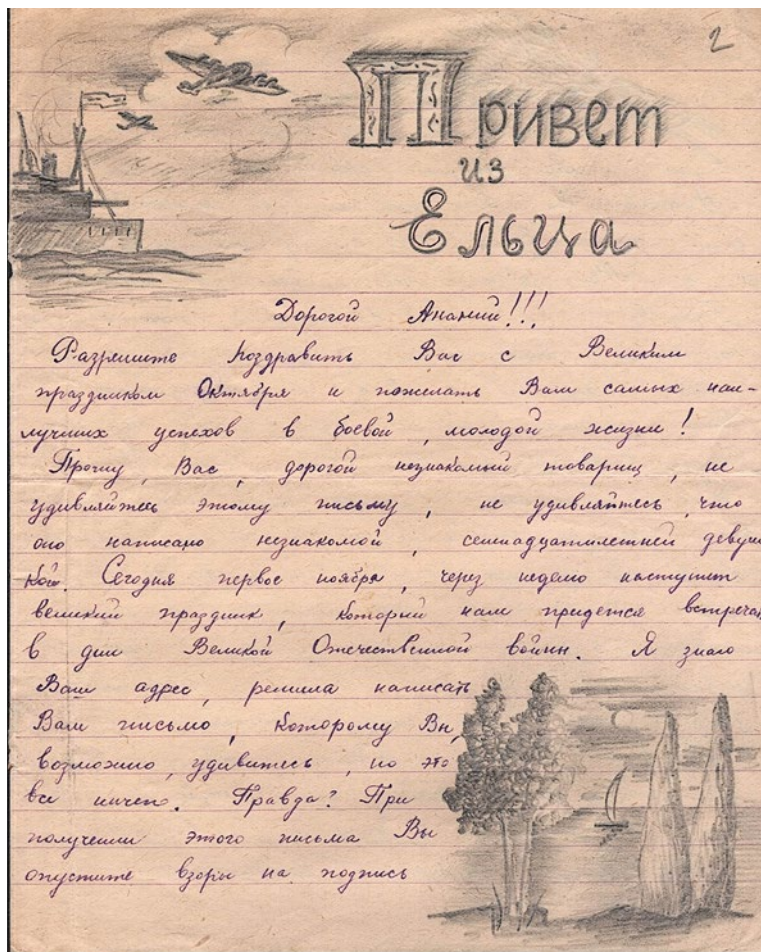 2
Привет
из
Ельца
Дорогой Ананий!!!
Разрешите поздравить Вас с Великим
праздником Октября и пожелать Вам самых наи-
лучших успехов в боевой, молодой жизни!
Прошу, Вас, дорогой незнакомый товарищ, не
удивляйтесь этому письму, не удивляйтесь, что
оно написано незнакомой, семнадцатилетней девуш
кой. Сегодня первое ноября, через неделю наступит
великий праздник, который нам придется встречат
в дни Великой Отечественной войны. Я знаю
Ваш адрес, решила написать
Вам письмо, которому Вы,
возможно, удивитесь, но это
все ничего. Правда? При
получении этого письма Вы
опустите взоры на подпись